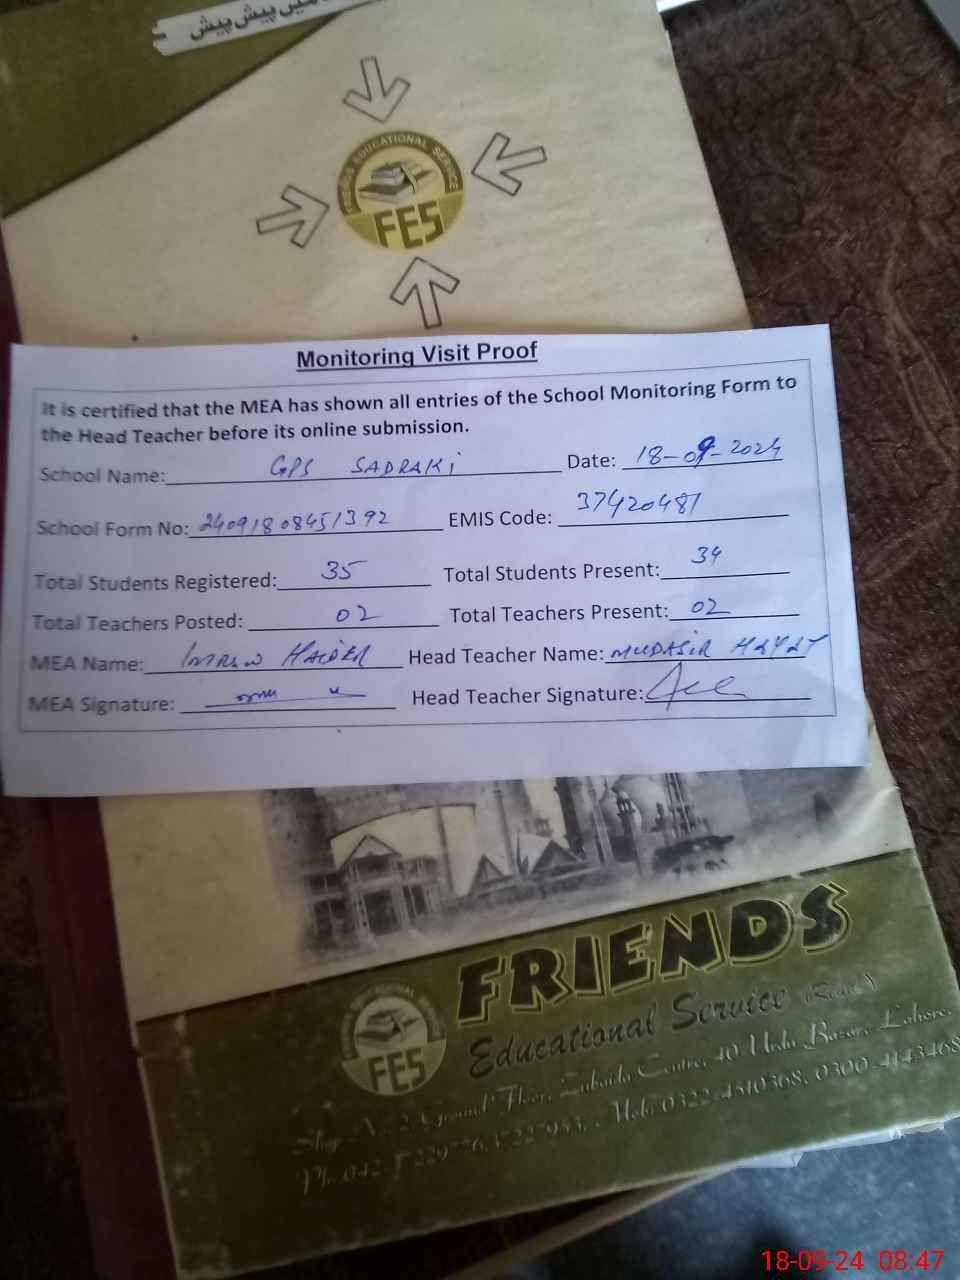 پیش پیش
FRIENDS EDUCATIONAL SERVICE
FES
Monitoring Visit Proof
It is certified that the MEA has shown all entries of the School Monitoring Form to
the Head Teacher before its online submission.
School Name: GPS SADRAKi Date: 18-09-2024
School Form No: 24091808451392 EMIS Code: 37420481
Total Students Registered: 35 Total Students Present: 34
Total Teachers Posted: 02 Total Teachers Present: 02
MEA Name: HAIDER Head Teacher Name: MUDASIR HAYAT
MEA Signature: Head Teacher Signature:
FRIENDS
Educational Service (Regd.)
EDUCATIONAL SERVICE
FES
Shop No. 2, Ground Floor, Zubaida Centre, 40 Urdu Bazar, Lahore.
Ph: 042- Mob: 0322-4310368, 0300-4143468
18-09-24 08:47